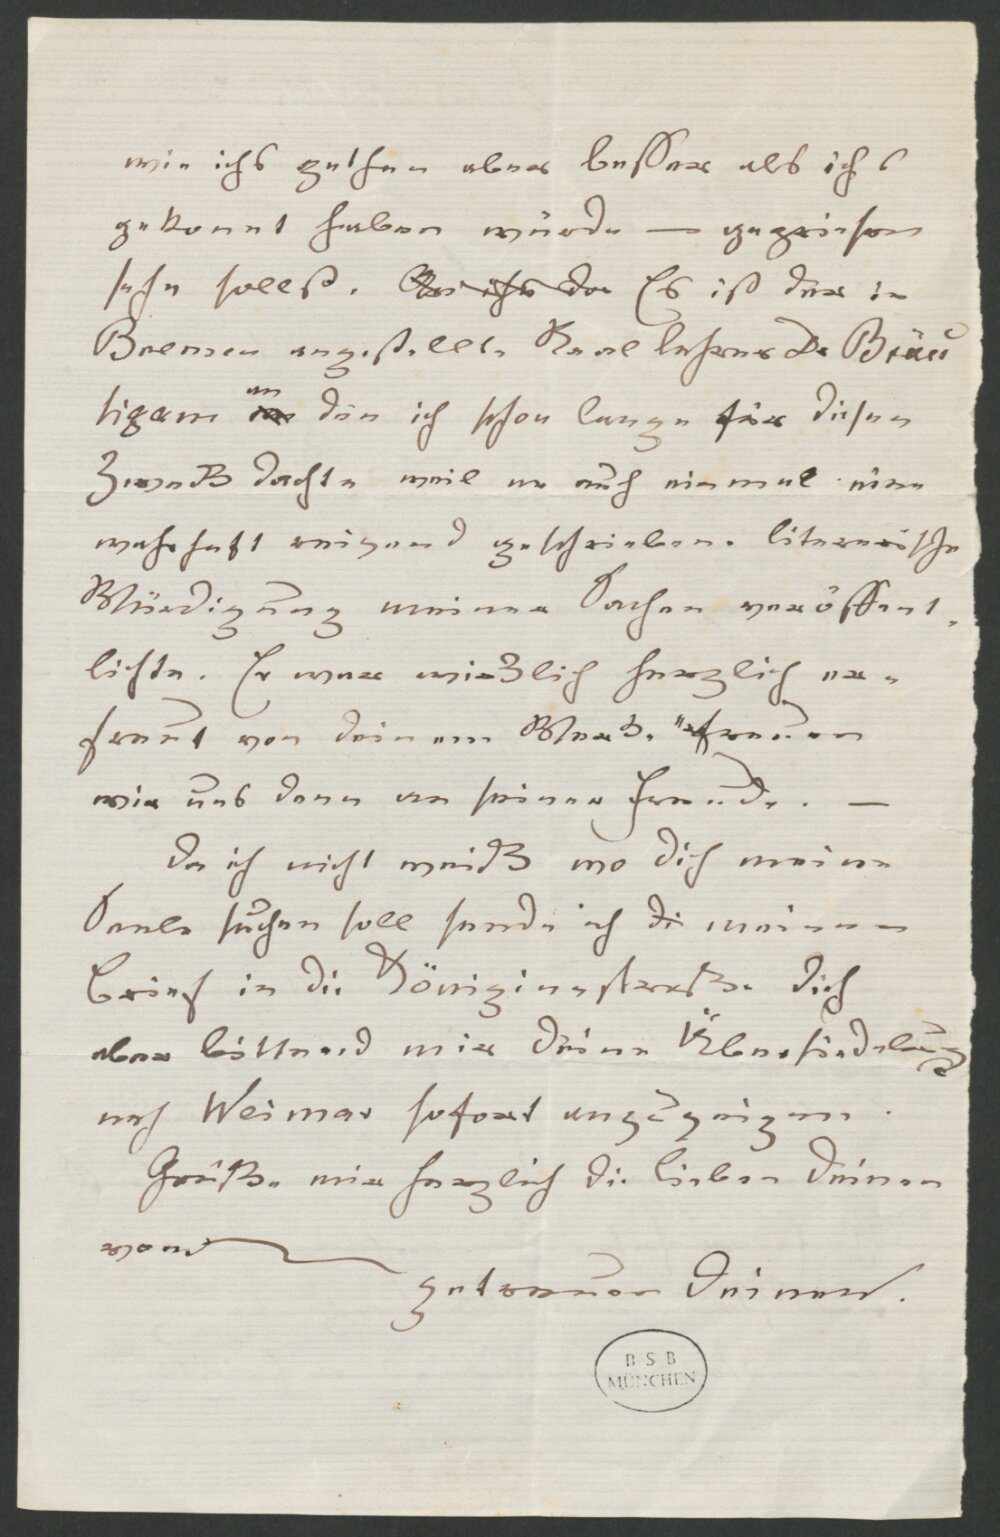 wie ichs gethan aber besser als ichs
gekonnt haben würde — gepriesen
sehn sollst. Es ist der in
Bremen angestellte Reallehrer Dr Bräu
tigam an den ich schon lange für diesen
Zweck dachte weil er auch einmal eine
wahrhaft reizend geschriebene literarische
Würdigung meiner Sachen veröffent
lichte. Er war wirklich herzlich er-
freut von deinem Werke "freuen
wir uns denn an seiner Freude. —
Da ich nicht weiß wo dich meine
Seele suchen soll sende ich dir meinen
Brief in die Königinstraße dich
aber bittend mir deine Übersiedelung
nach Weimar sofort anzuzeigen.
Grüße mir herzlich die lieben Deinen
von
getreuen Deinen.
B S B
MÜNCHEN